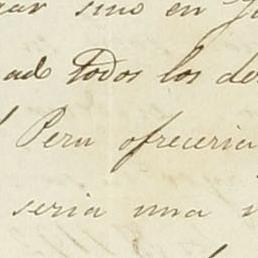 sino en
ad todos los de
Peru ofreceria
seria una